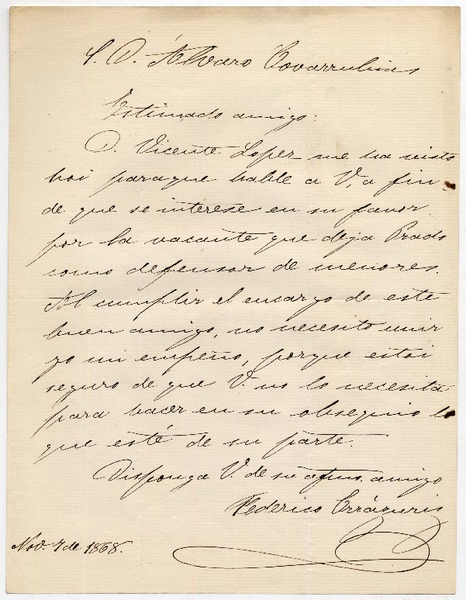 S. D. Álvaro Covarrubias
Estimado amigo:
D. Vicente Lopez me ha visto
hoi para que hable a V, a fin
de que se interese en su favor
por la vacante que deja Prado
como defensor de menores.
Al cumplir el encargo de este
buen amigo, no necesito unir
yo mi empeño, porque estoi
seguro de que V. no lo necesita
para hacer en su obsequio lo
que esté de su parte.
Disponga V. de su afmo. amigo
Federico Errázuriz
Nov. 7 de 1868.